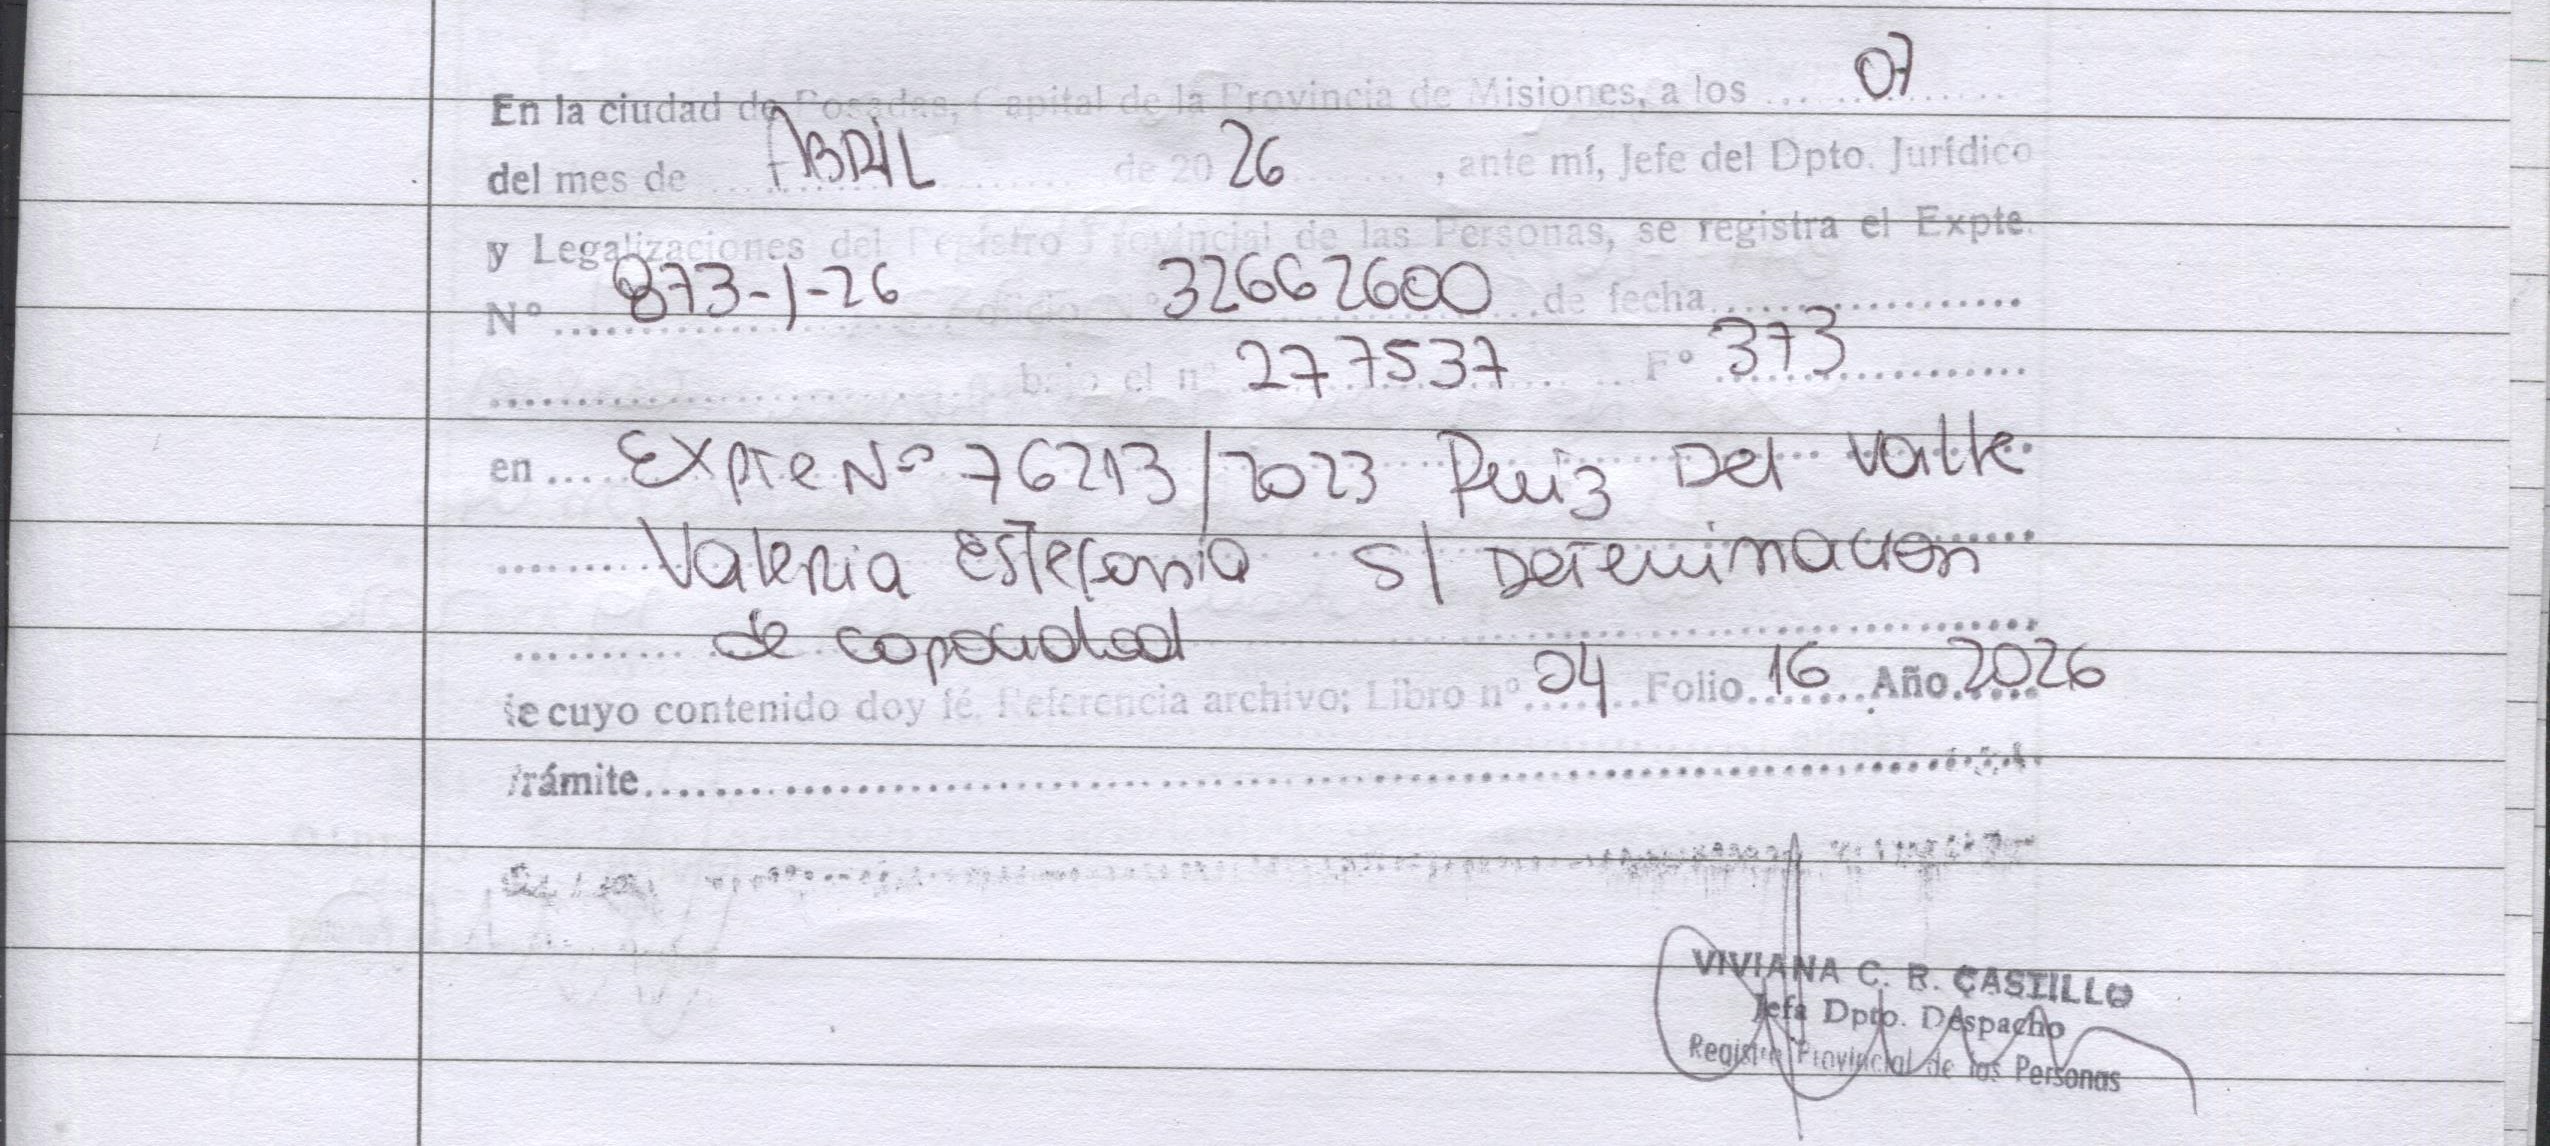 En la ciudad de Posadas, Capital de la Provincia de Misiones, a los ... 07 ...
del mes de ... ABRIL ... de 20 26 ..., ante mí, Jefe del Dpto. Jurídico
y Legalizaciones del Registro Provincial de las Personas, se registra el Expte.
Nº ... 873-1-26 ... Oficio Nº 32662600 ... de fecha ...
... bajo el nº 277537 ... Fº 373 ...
en ... Expte Nº 76213/2023 Ruiz Del Valle
Valeria Estefania S/ Determinacion
de capacidad
de cuyo contenido doy fé. Referencia archivo; Libro nº 04 Folio 16 Año 2026
trámite ...
VIVIANA C. R. CASTILLO
Jefa Dpto. Despacho
Registro Provincial de las Personas